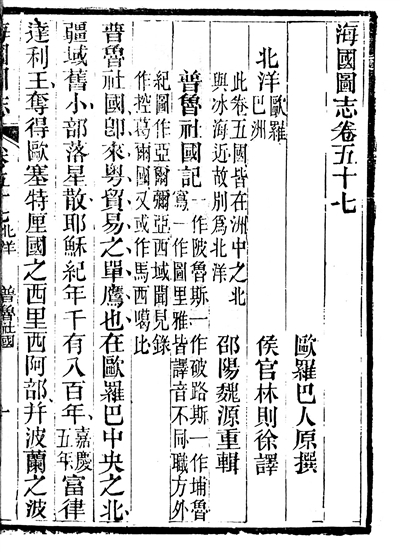 海國圖志卷五十七
歐羅巴人原撰
侯官林則徐譯
邵陽魏源重輯
北洋歐羅巴洲
此卷五國皆在洲中之北
與冰海近故別為北洋
普魯社國記一作陂魯斯一作破路斯一作埔魯
寫一作圖里雅皆譯音不同職方外
紀圖作亞爾彌亞西域聞見錄
作控葛爾國又或作馬西噶比
普魯社國卽來粵貿易之單鷹也在歐羅巴中央之北
疆域舊小部落星散耶穌紀年千有八百年嘉慶五年富律
達利王奪得歐塞特厘國之西里西阿部幷波蘭之波
海國圖志
卷五十七北洋 普魯社國 一